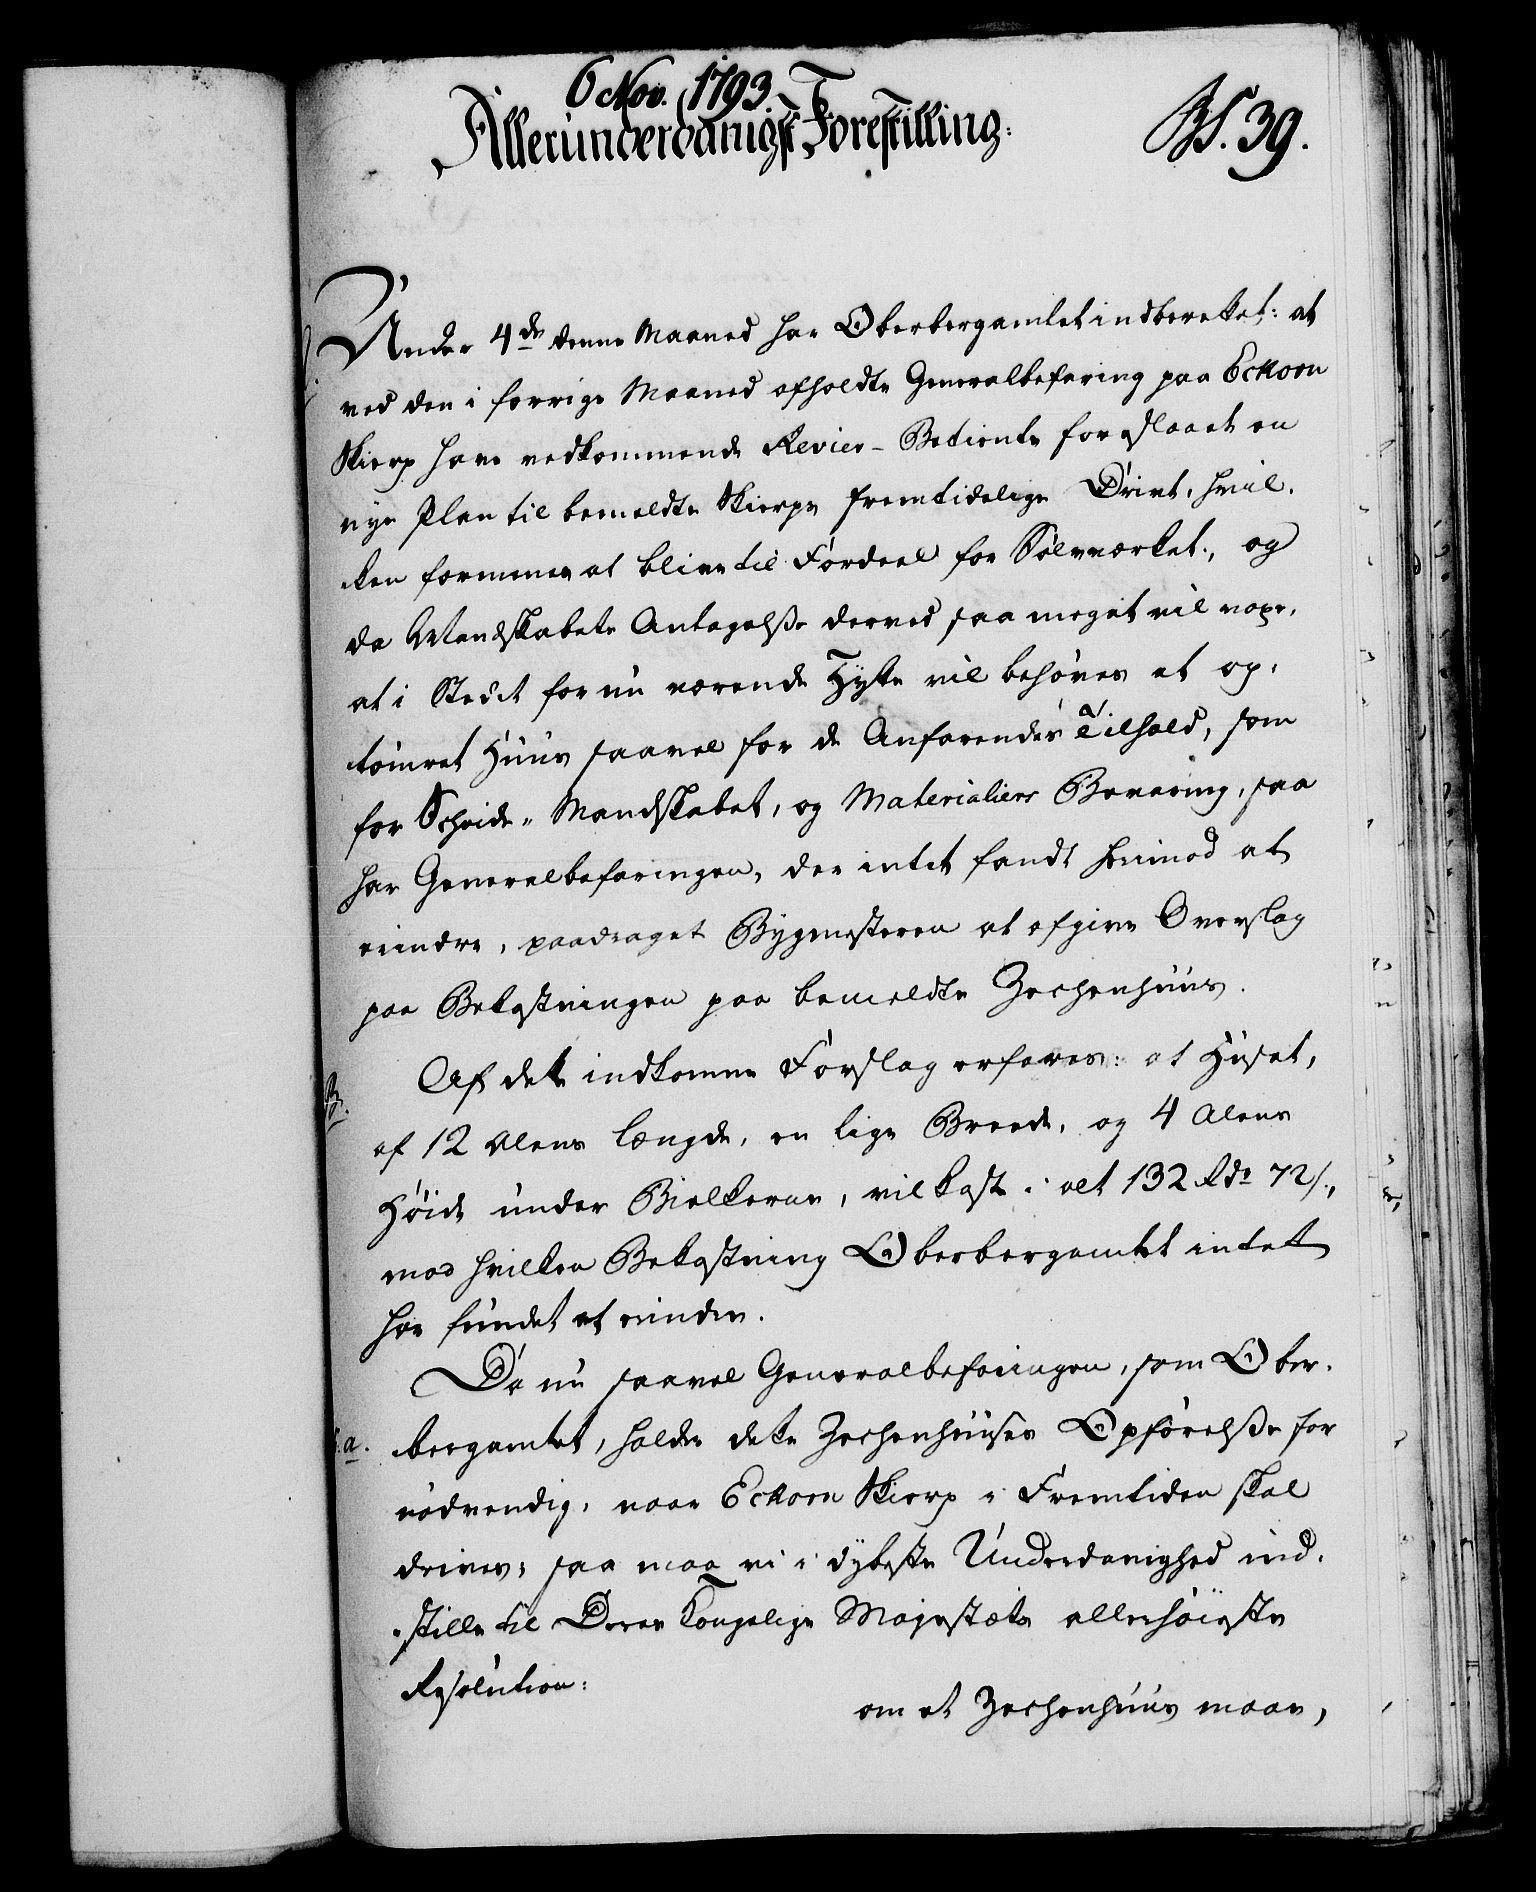 6 Nov. 1793.
Allerunderdanigst Forestilling:
Bs. 39.
Under 4de denne Maaned har Oberbergamtet indberettet: at
ved den i forrige Maaned afholdte Generalbefaring paa Eckorn
Skierp have vedkommende Revier-Betiente foreslaaet en
nye Plan til bemeldte Skierps fremtidelige Drivt, hvil-
ken formenes at blive til Fordeel for Sølvverket, og
da Mandskabets Antagelse derved saa meget vil voxe,
at i Stedet for nu værende Hytte vil behøves et op-
tømret Huus saavel for de Anfarendes Tilhold, som
for Scheide-Mandskabet, og Materialiers Bevaring, saa
har Generalbefaringen, der intet fandt herimod at
erindre, paadraget Bygmesteren at afgive Overslag
paa Bekostningen paa bemeldte Zechenhuus.
B.
Af dette indkomne Forslag erfares: at Huset,
af 12 Alens Længde, en lige Breede, og 4 Alens
Høide under Bielkerne, vil koste i alt 132 Rdr 72 s.,
mod hvilken Bekostning Oberbergamtet intet
har fundet at erindre.
Da nu saavel Generalbefaringen, som Ober-
a.
bergamtet, holder dette Zechenhuuses Opførelse for
nødvendig, naar Eckorn Skierp i Fremtiden skal
drives; saa maa vi i dybeste Underdanighed ind-
stille til Deres Kongelige Majestæts allerhøieste
Resolution:
om et Zechenhuus maae,